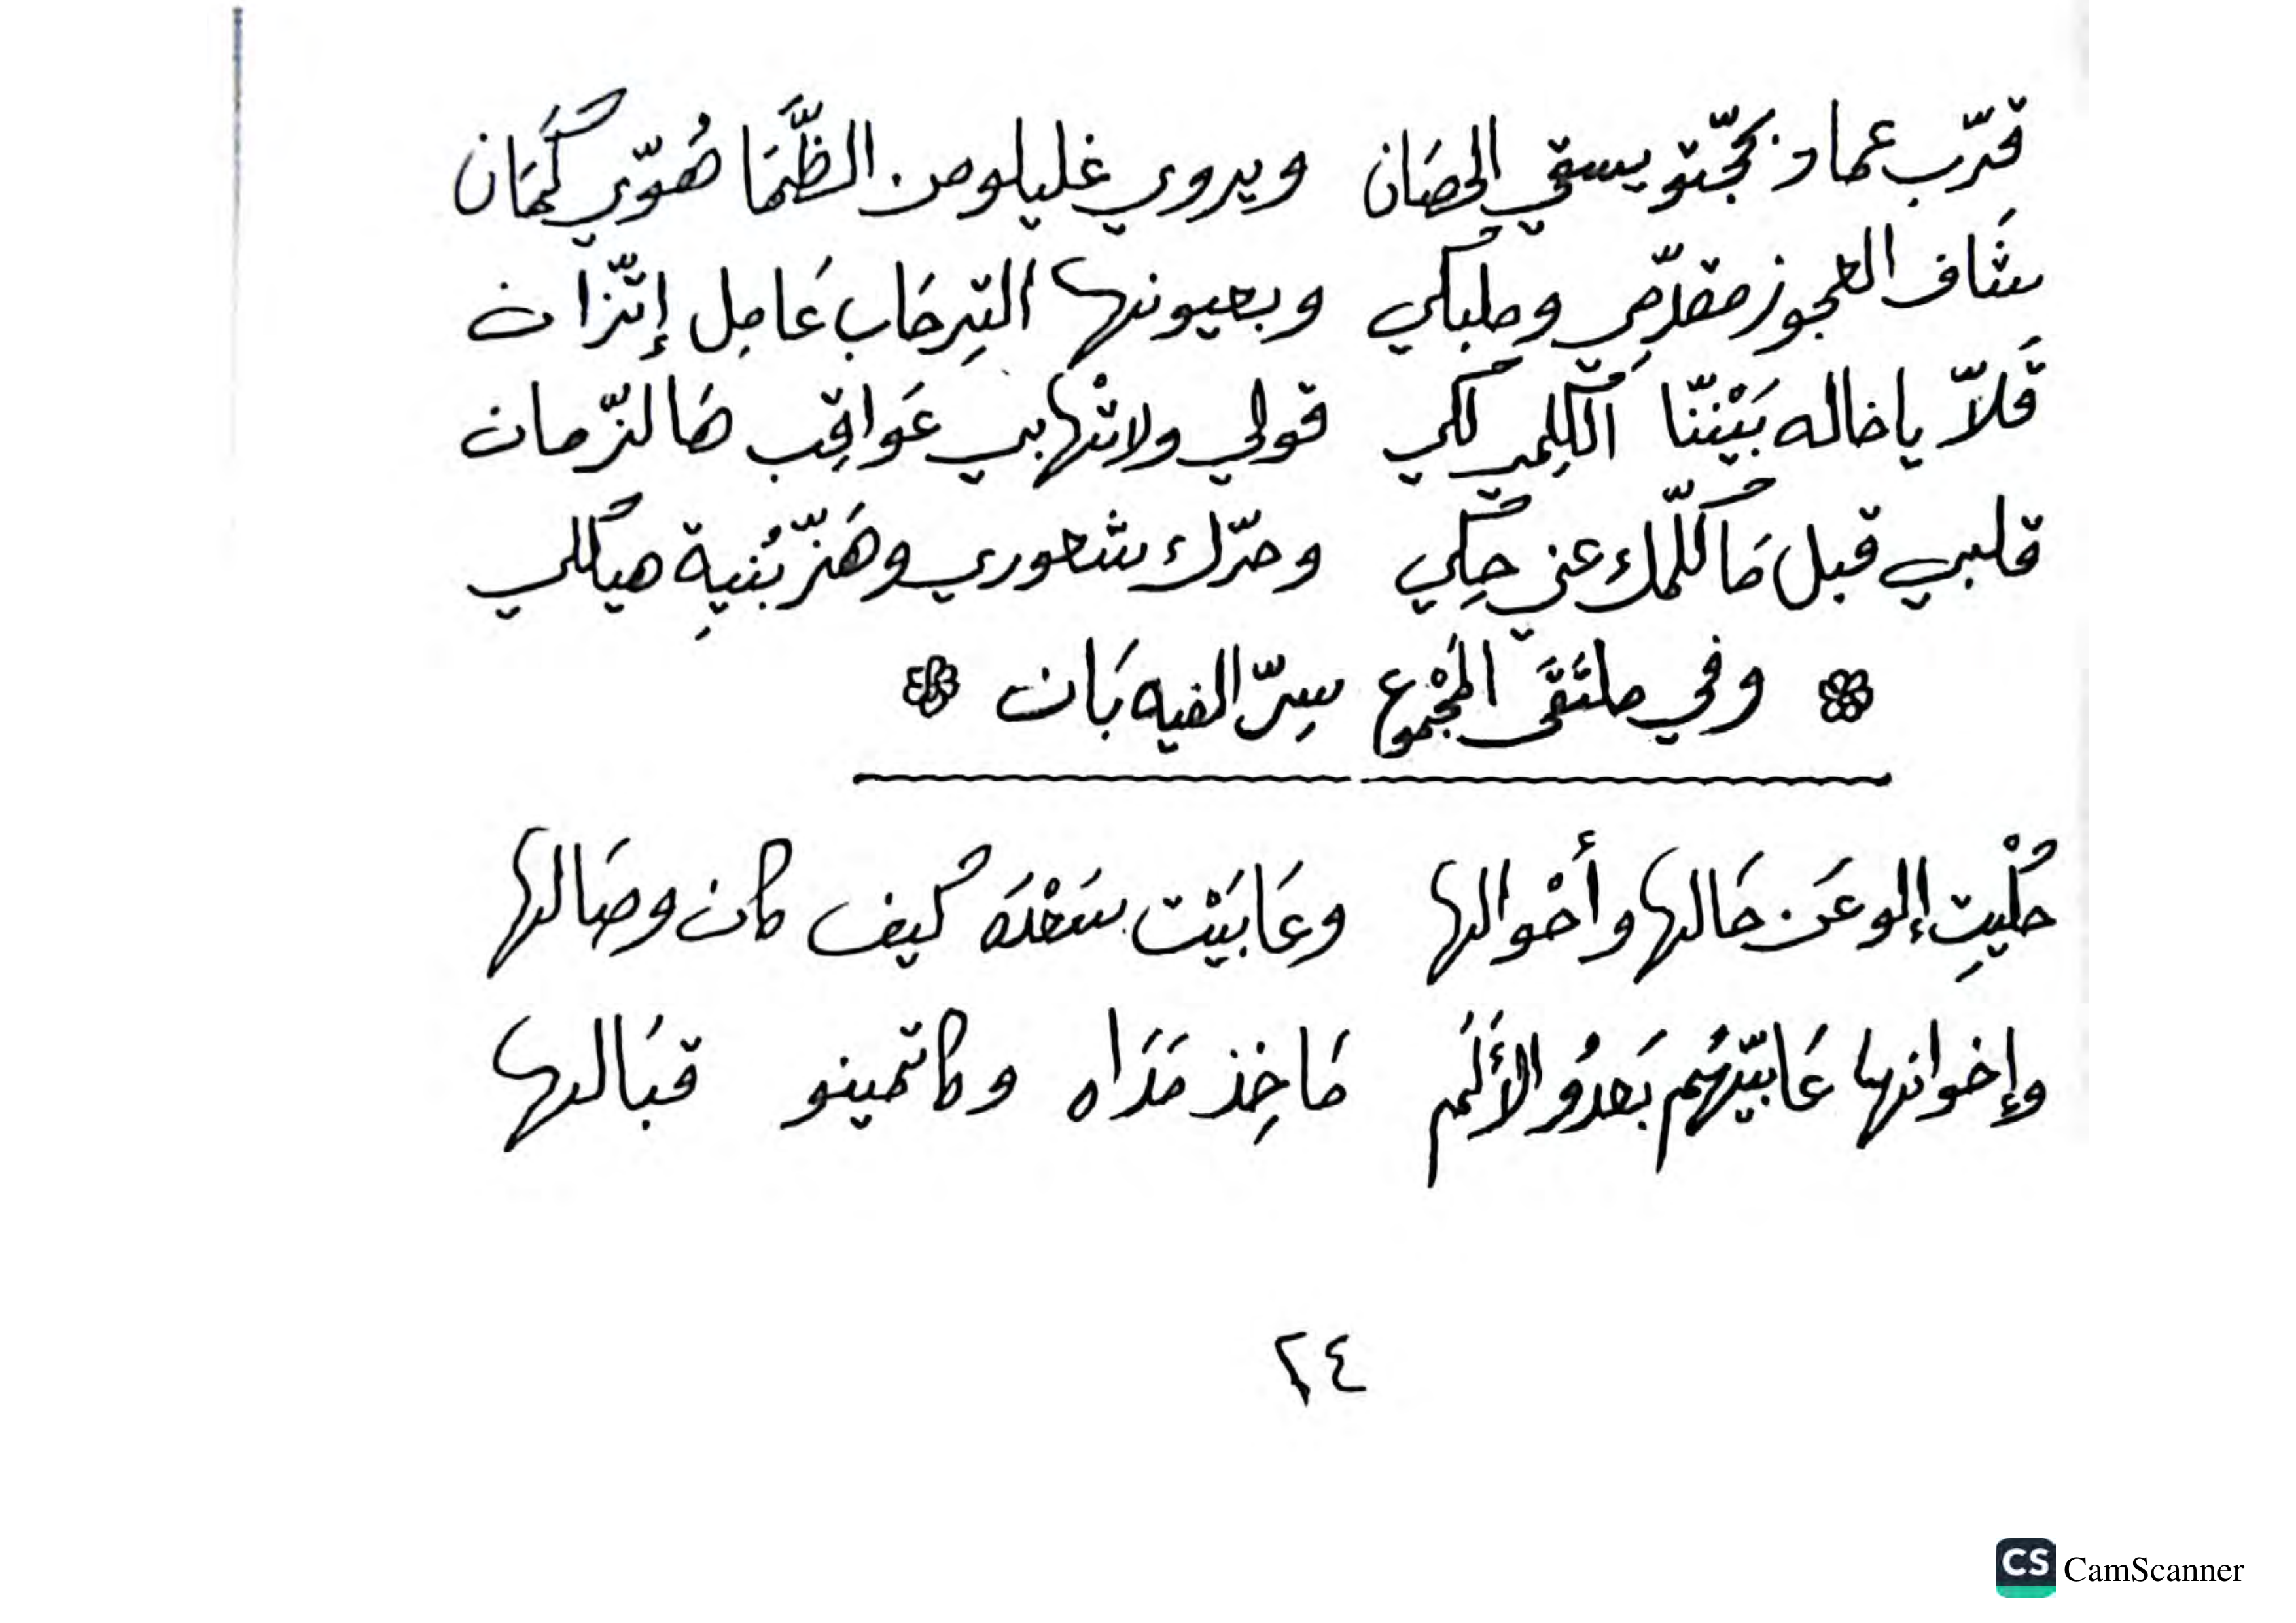 قرّب عماد بحجّتو يسقي الحصَان ويروي غليلو من الظَّمَا هُوّي كَمَان
شَاف العجوز مقدّمِي وملبكي وبعيونها التِرحَاب عَامِل إتّزان
قَلاّ ياخاله بَيْنَنّا الكِلمي لكي قولي ولاتْهابي عَواقِب هَالزّمان
قلبي قبل مَاكلّمك عنّي حِكي وحرّك شعوري وهَزّ بُنيةِ هيكلي
وفي ملتَقَى المَجْموع سِرّ الفيه بَان
حْكْيِت إلو عَن حَالها وأحْوالها وعَابَيْت سَعْدَه كيف كان وصَالها
وإخوانها عَابيّهُم بَعدُو الأَلَم مَاخِذ مَدَاه وكاتمينو قبَالها
٢٤
CS CamScanner